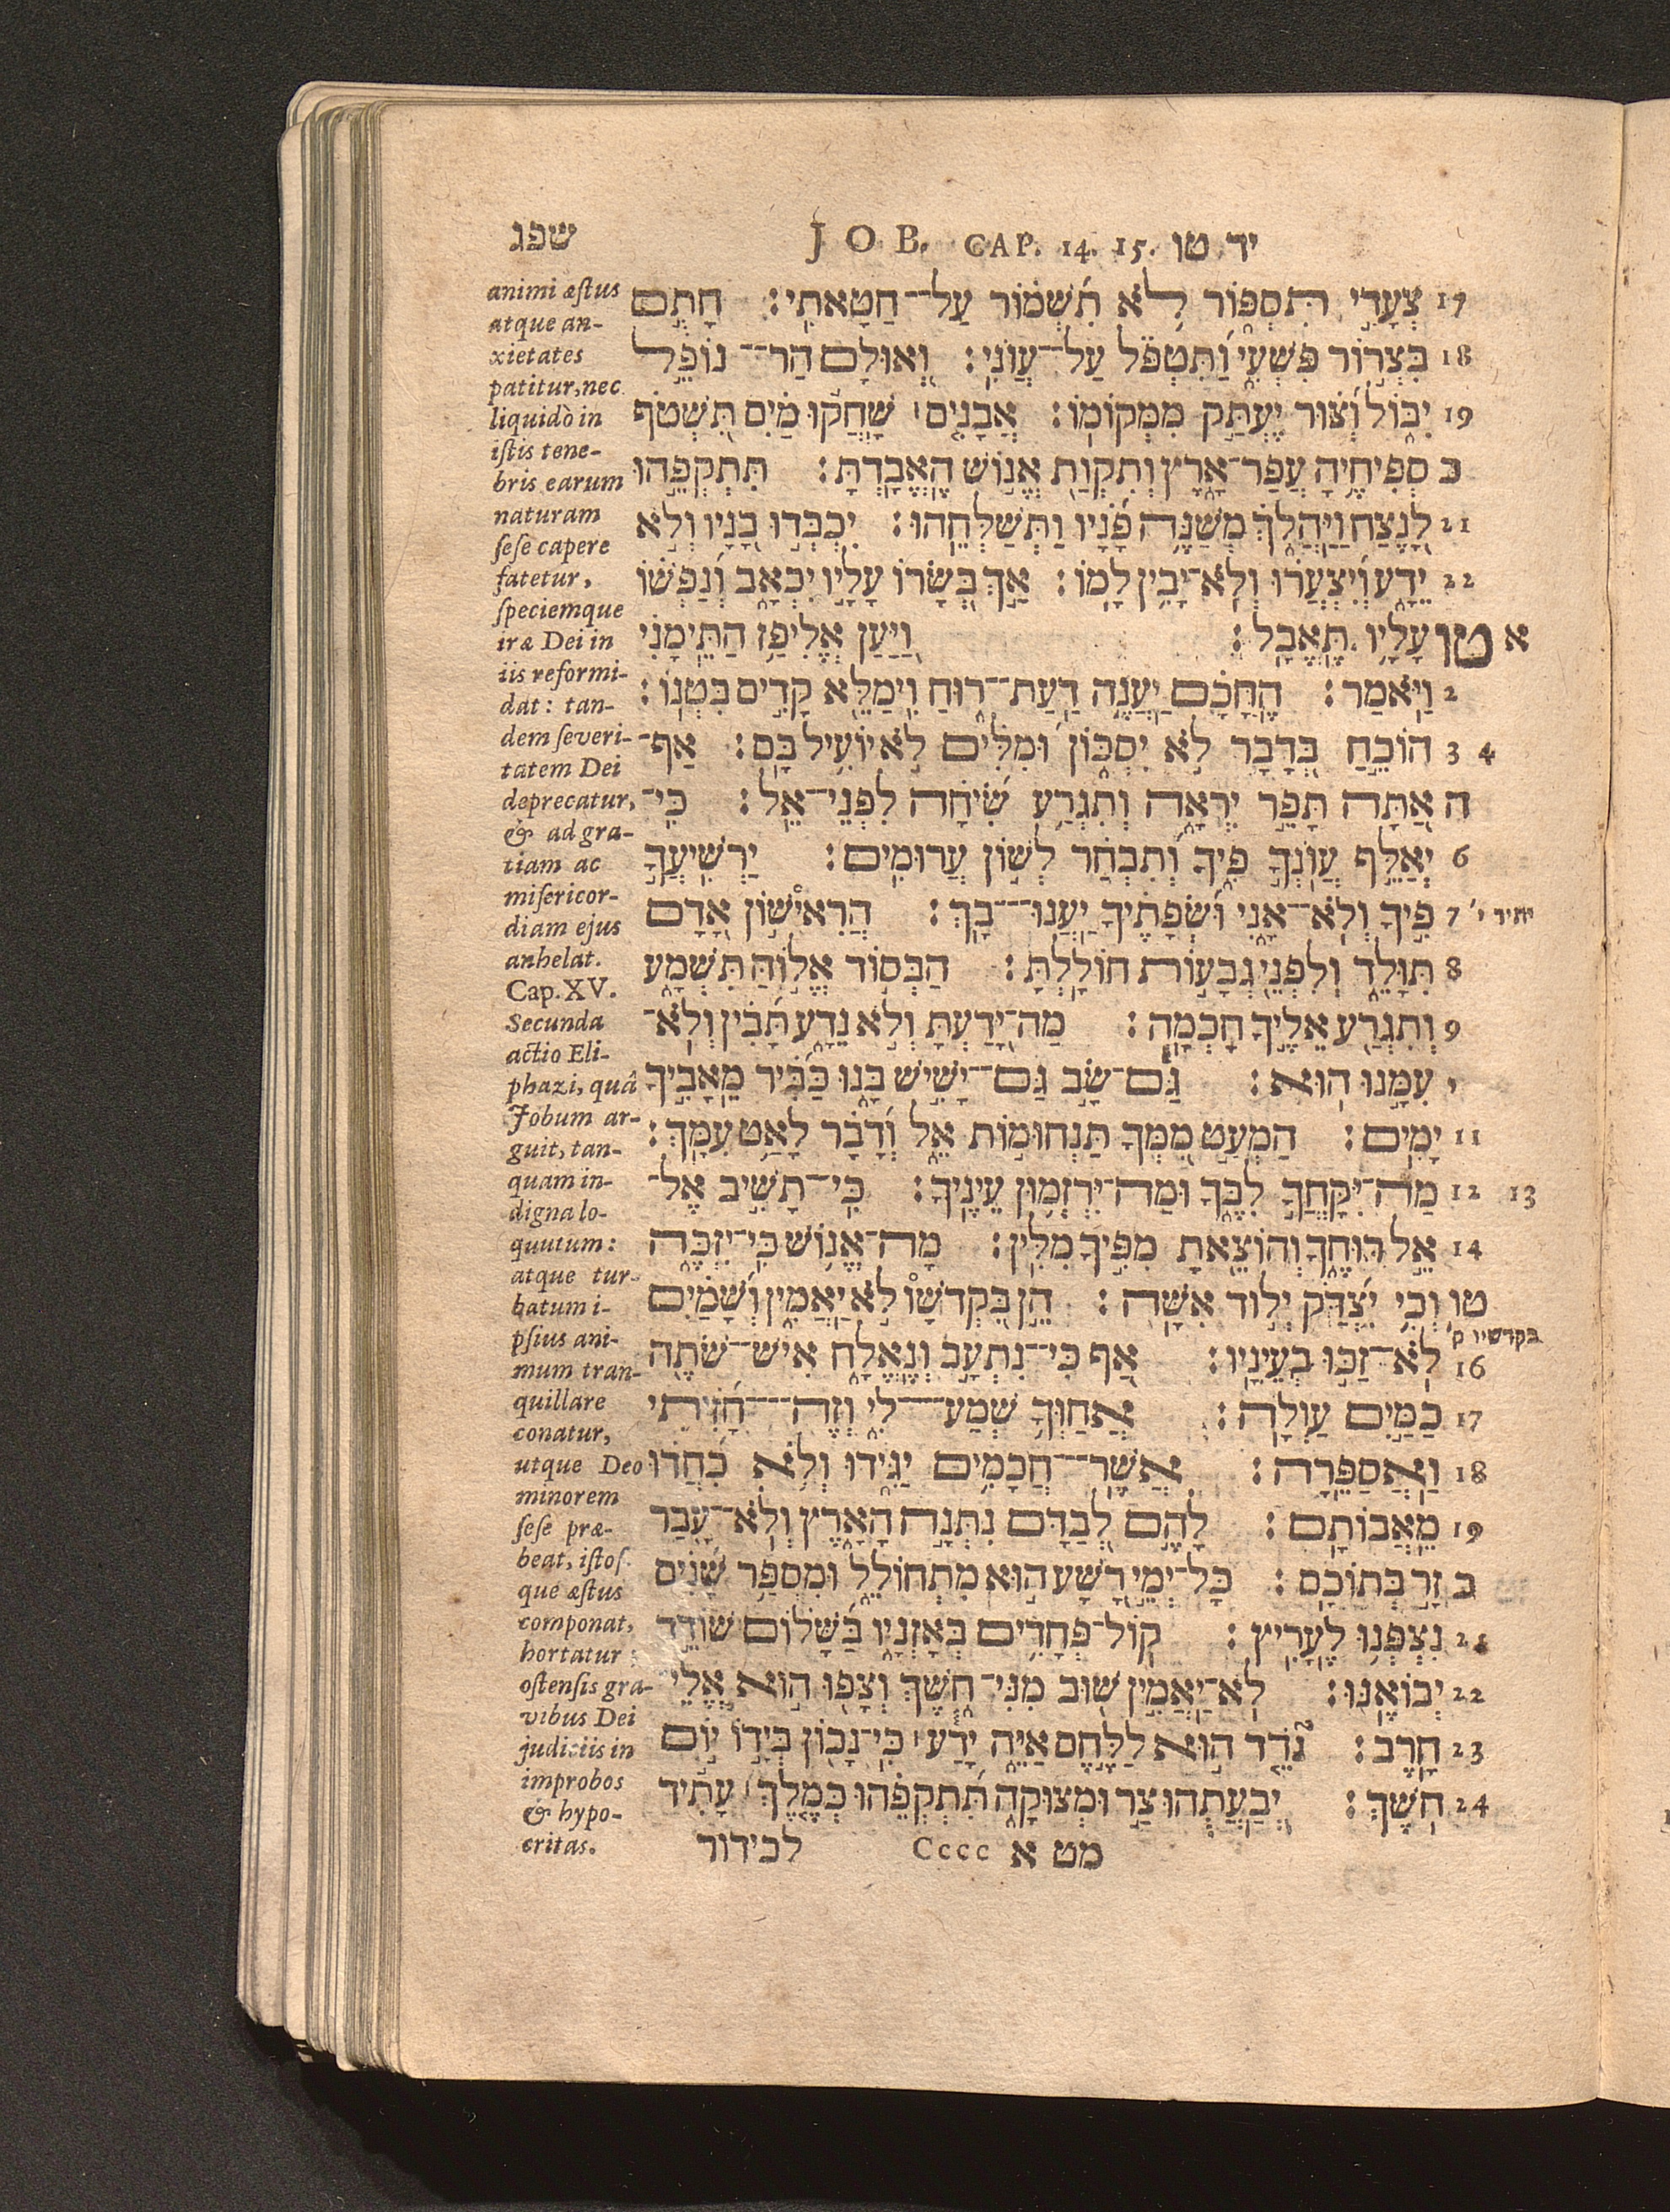 שפג J O B. CAP. 14. 15. יד טו
17 צְעָדַי תִּסְפּוֹר לֹא תִשְׁמוֹר עַל־חַטָּאתִי׃ חָתֻם
18 בִּצְרוֹר פִּשְׁעִי וַתִּטְפֹּל עַל־עֲוֹנִי׃ וְאוּלָם הַר־נוֹפֵל
19 יִבּוֹל וְצוּר יֶעְתַּק מִמְּקוֹמוֹ׃ אֲבָנִים שָׁחֲקוּ מַיִם תִּשְׁטֹף
כ סְפִיחֶיהָ עֲפַר־אָרֶץ וְתִקְוַת אֱנוֹשׁ הֶאֱבַדְתָּ׃ תִּתְקְפֵהוּ
21 לָנֶצַח וַיַּהֲלֹךְ מְשַׁנֶּה פָנָיו וַתְּשַׁלְּחֵהוּ׃ יִכְבְּדוּ בָנָיו וְלֹא
22 יֵדָע וְיִצְעֲרוּ וְלֹא־יָבִין לָמוֹ׃ אַךְ בְּשָׂרוֹ עָלָיו יִכְאָב וְנַפְשׁוֹ
א טו עָלָיו תֶּאֱבָל׃ וַיַּעַן אֱלִיפַז הַתֵּימָנִי
2 וַיֹּאמַר׃ הֶחָכָם יַעֲנֶה דַעַת־רוּחַ וִימַלֵּא קָדִים בִּטְנוֹ׃
3 4 הוֹכֵחַ בְּדָבָר לֹא יִסְכּוֹן וּמִלִּים לֹא יוֹעִיל בָּם׃ אַף־
ה אַתָּה תָּפֵר יִרְאָה וְתִגְרַע שִׂיחָה לִפְנֵי־אֵל׃ כִּי־
6 יְאַלֵּף עֲוֹנְךָ פִיךָ וְתִבְחַר לְשׁוֹן עֲרוּמִים׃ יַרְשִׁיעֲךָ
7 פִיךָ וְלֹא־אָנִי וּשְׂפָתֶיךָ יַעֲנוּ־בָךְ׃ הֲרִאישׁוֹן אָדָם
יתיר י׳
8 תִּוָּלֵד וְלִפְנֵי גְבָעוֹת חוֹלָלְתָּ׃ הַבְּסוֹד אֱלוֹהַּ תִּשְׁמָע
9 וְתִגְרַע אֵלֶיךָ חָכְמָה׃ מַה־יָּדַעְתָּ וְלֹא נֵדָע תָּבִין וְלֹא־
י עִמָּנוּ הוּא׃ גַּם־שָׂב גַּם־יָשִׁישׁ בָּנוּ כַּבִּיר מֵאָבִיךָ
11 יָמִים׃ הַמְעַט מִמְּךָ תַּנְחוּמוֹת אֵל וְדָבָר לָאַט עִמָּךְ׃
12 13 מַה־יִּקָּחֲךָ לִבֶּךָ וּמַה־יִּרְזְמוּן עֵינֶיךָ׃ כִּי־תָשִׁיב אֶל־
14 אֵל רוּחֶךָ וְהוֹצֵאתָ מִפִּיךָ מִלִּין׃ מָה־אֱנוֹשׁ כִּי־יִזְכֶּה
טו וְכִי יִצְדַּק יְלוּד אִשָּׁה׃ הֵן בִּקְדֹשָׁו לֹא יַאֲמִין וְשָׁמַיִם
בקדשיו ק׳
16 לֹא־זַכּוּ בְעֵינָיו׃ אַף כִּי־נִתְעָב וְנֶאֱלָח אִישׁ־שֹׁתֶה
17 כַמַּיִם עַוְלָה׃ אֲחַוְךָ שְׁמַע־לִי וְזֶה־חָזִיתִי
18 וַאֲסַפֵּרָה׃ אֲשֶׁר־חֲכָמִים יַגִּידוּ וְלֹא כִחֲדוּ
19 מֵאֲבוֹתָם׃ לָהֶם לְבַדָּם נִתְּנָה הָאָרֶץ וְלֹא־עָבַר
כ זָר בְּתוֹכָם׃ כָּל־יְמֵי רָשָׁע הוּא מִתְחוֹלֵל וּמִסְפַּר שָׁנִים
21 נִצְפְּנוּ לֶעָרִיץ׃ קוֹל־פְּחָדִים בְּאָזְנָיו בַּשָּׁלוֹם שׁוֹדֵד
22 יְבוֹאֶנּוּ׃ לֹא־יַאֲמִין שׁוּב מִנִּי־חֹשֶׁךְ וְצָפוּ הוּא אֱלֵי־
23 חָרֶב׃ נֹדֵד הוּא לַלֶּחֶם אַיֵּה יָדַע כִּי־נָכוֹן בְּיָדוֹ יוֹם
24 חֹשֶׁךְ׃ יְבַעֲתֻהוּ צַר וּמְצוּקָה תִּתְקְפֵהוּ כְּמֶלֶךְ עָתִיד
מט א Cccc לכידור
animi æſtus
atque an-
xietates
patitur, nec
liquidò in
iſtis tene-
bris earum
naturam
ſeſe capere
fatetur,
ſpeciemque
iræ Dei in
iis reformi-
dat: tan-
dem ſeveri-
tatem Dei
deprecatur,
& ad gra-
tiam ac
miſericor-
diam ejus
anhelat.
Cap. XV.
Secunda
actio Eli-
phazi, quâ
Jobum ar-
guit, tan-
quam in-
digna lo-
quutum:
atque tur-
batum i-
pſius ani-
mum tran-
quillare
conatur,
utque Deo
minorem
ſeſe præ-
beat, iſtoſ-
que æſtus
componat,
hortatur:
oſtenſis gra-
vibus Dei
judiciis in
improbos
& hypo-
critas.